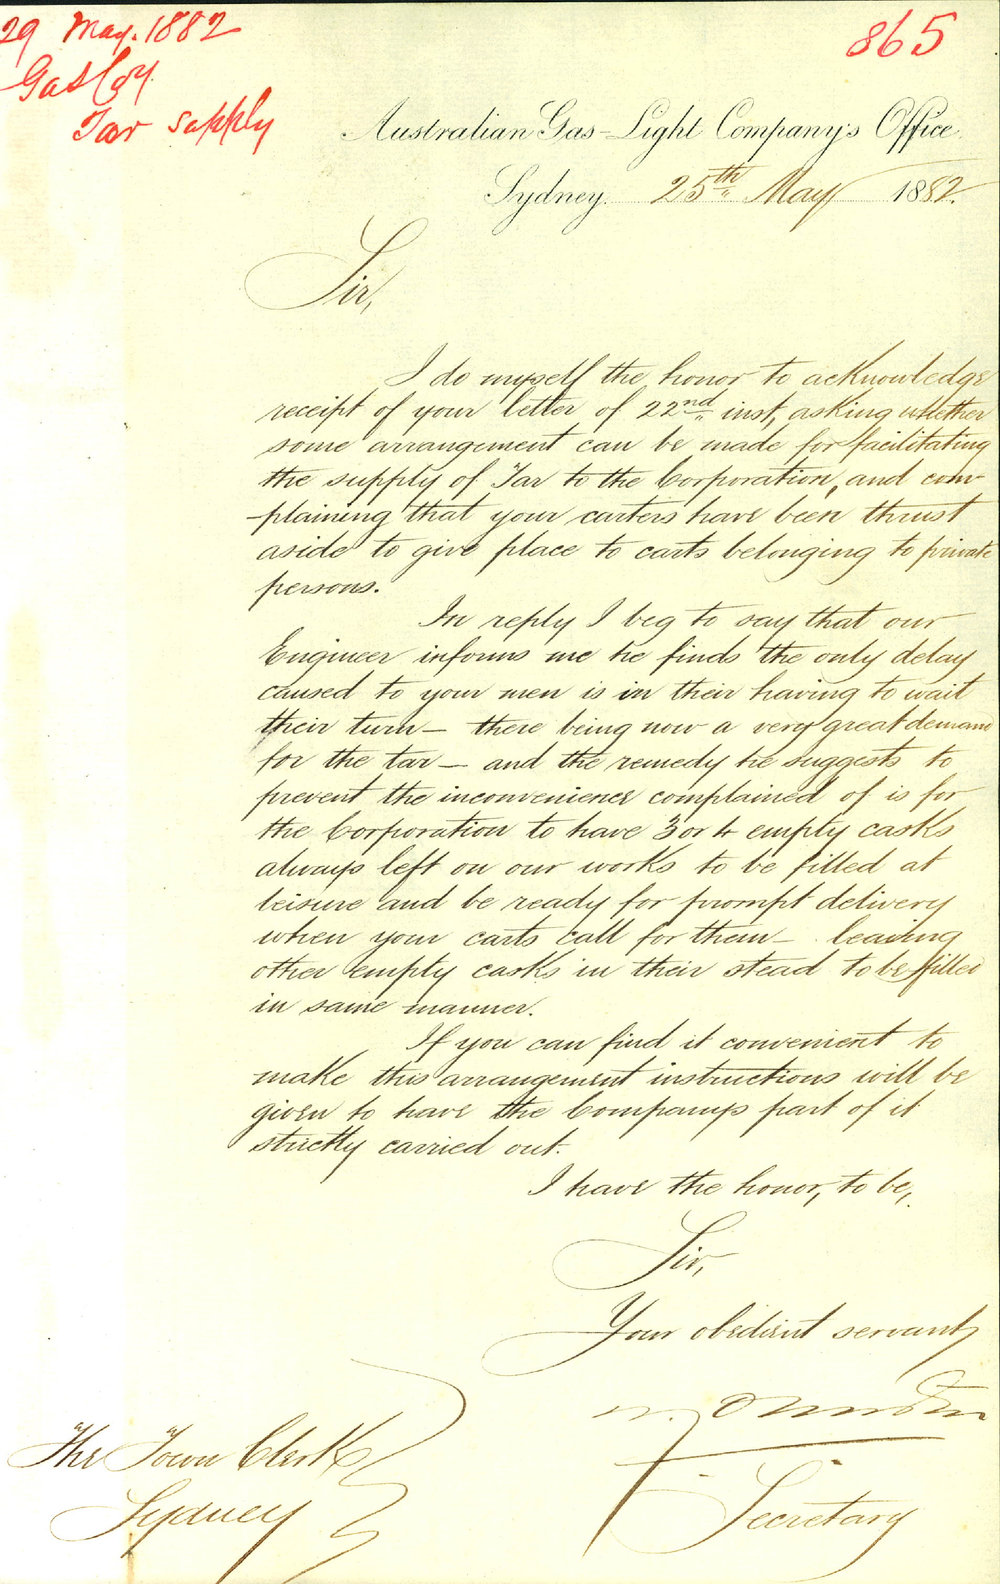 29 May. 1882
865
Gas Coy
Tar supply
Australian Gas-Light Company's Office
Sydney. 25th May 1882.
Sir,
I do myself the honor to acknowledge
receipt of your letter of 22nd inst, asking whether
some arrangement can be made for facilitating
the supply of Tar to the Corporation, and com-
-plaining that your carters have been thrust
aside to give place to carts belonging to private
persons.
In reply I beg to say that our
Engineer informs me he finds the only delay
caused to your men is in their having to wait
their turn — there being now a very great demand
for the tar — and the remedy he suggests to
prevent the inconvenience complained of is for
the Corporation to have 3 or 4 empty casks
always left on our works to be filled at
leisure and be ready for prompt delivery
when your carts call for them — leaving
other empty casks in their stead to be filled
in same manner.
If you can find it convenient to
make this arrangement instructions will be
given to have the Companys part of it
strictly carried out.
I have the honor, to be,
Sir,
Your obedient servant
Secretary
The Town Clerk
Sydney